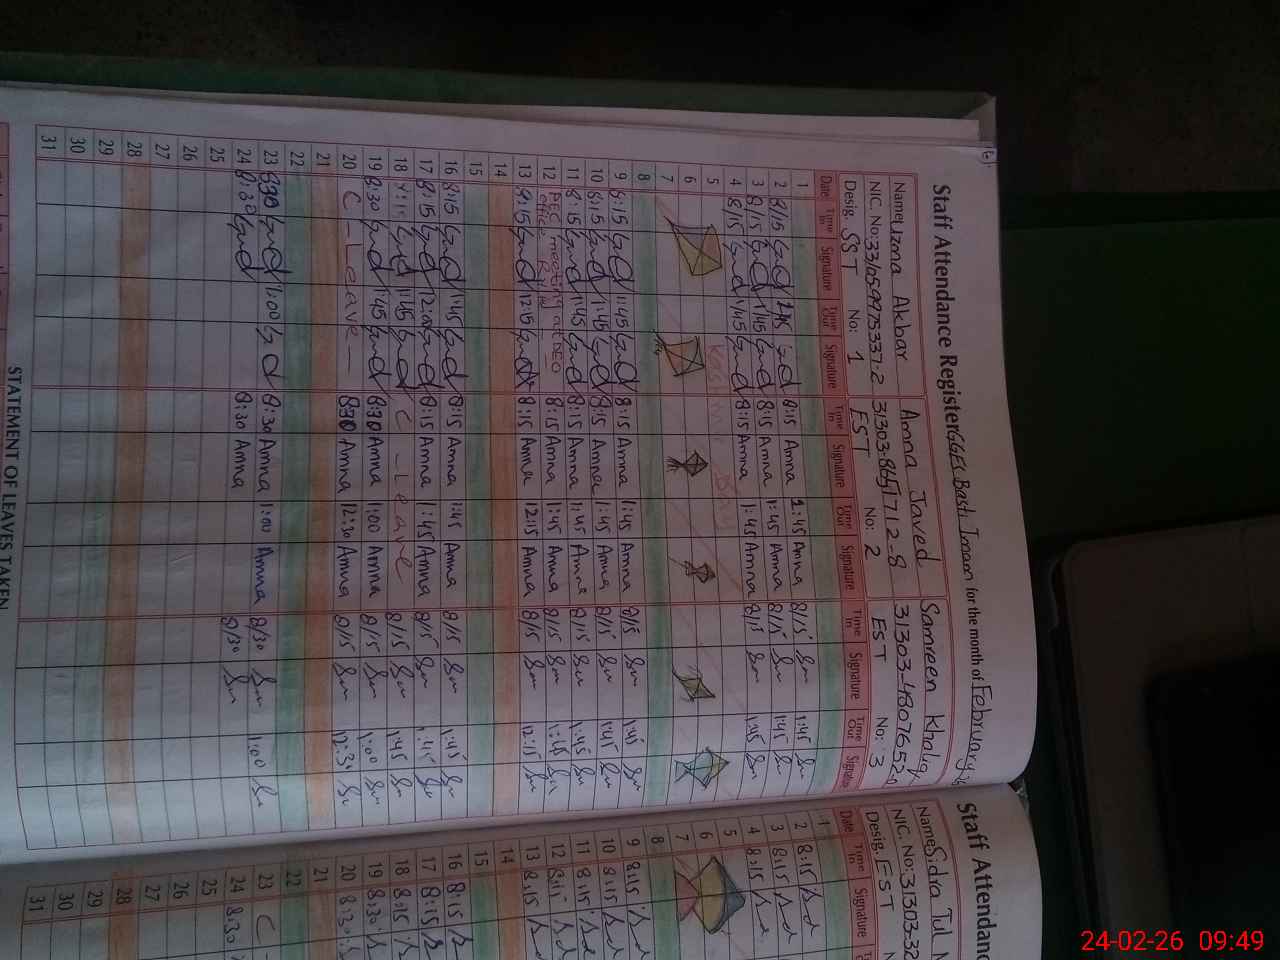 Staff Attendance Register GGES Basti Imam for the month of February
Name: Uzma Akbar Amna Javed Samreen Khaliq
NIC. No: 31303-8651712-8 31303-4807652-0
Desig. SST No: 1 EST No: 2 EST No: 3
Date Time In Signature Time Out Signature Time In Signature Time Out Signature Time In Signature Time Out Signature
1
2 8/15 1:45 8:15 Amna 1:45 Amna 8/15 1:45
3 8/15 1:45 8:15 Amna 1:45 Amna 8/15 1:45
4 8/15 1/45 8:15 Amna 1:45 Amna 8/15 1:45
5
6
7
8
9 8:15 1:45 8:15 Amna 1:45 Amna 8/15 1:45
10 8:15 1:45 8:15 Amna 1:45 Amna 8/15 1:45
11 8:15 1:45 8:15 Amna 1:45 Amna 8/15 1:45
12 PEC meeting at DEO office 8:15 Amna 1:45 Amna 8/15 1:45
13 8:15 12:15 8:15 Amna 12:15 Amna 8/15 12:15
14
15
16 8:15 1:45 8:15 Amna 1:45 Amna 8/15 1:45
17 8:15 12:00 8:15 Amna 1:45 Amna 8/15 1:45
18 1:45 C - Leave 8/15 1:45
19 8:30 1:45 8:30 Amna 1:00 Amna 8/15 1:00
20 C - Leave - 8:30 Amna 12:30 Amna 8/15 12:30
21
22
23 8:30 1:00 8:30 Amna 1:00 Amna 8/30 1:00
24 8:30 8:30 Amna 8/30
25
26
27
28
29
30
31
STATEMENT OF LEAVES TAKEN
Staff Attendance
Name: Sidra Tul
NIC. No: 31303-32
Desig. EST
Date Time In Signature
1
2 8:15
3 8:15
4 8:15
5
6
7
8
9 8:15
10 8:15
11 8:15
12 8:15
13 8:15
14
15
16 8:15
17 8:15
18 8:15
19 8:30
20 8:30
21
22
23 C -
24 8:30
25
26
27
28
29
30
31
24-02-26 09:49